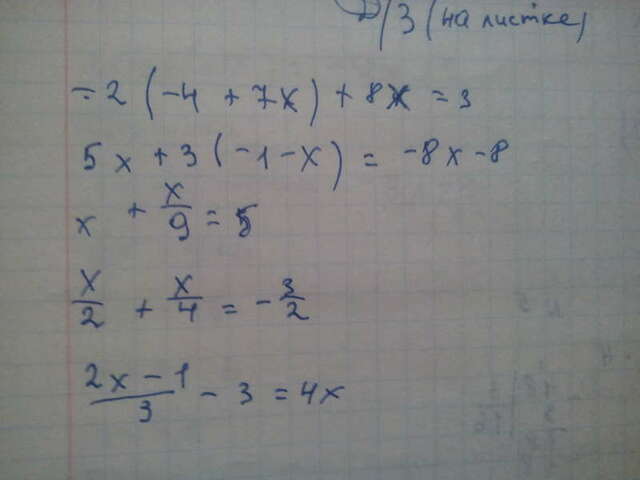 Д/З (на листке)
-2 (-4 + 7x) + 8x = 3
5x + 3 (-1 - x) = -8x - 8
x + x/9 = 5
x/2 + x/4 = -3/2
(2x - 1)/3 - 3 = 4x